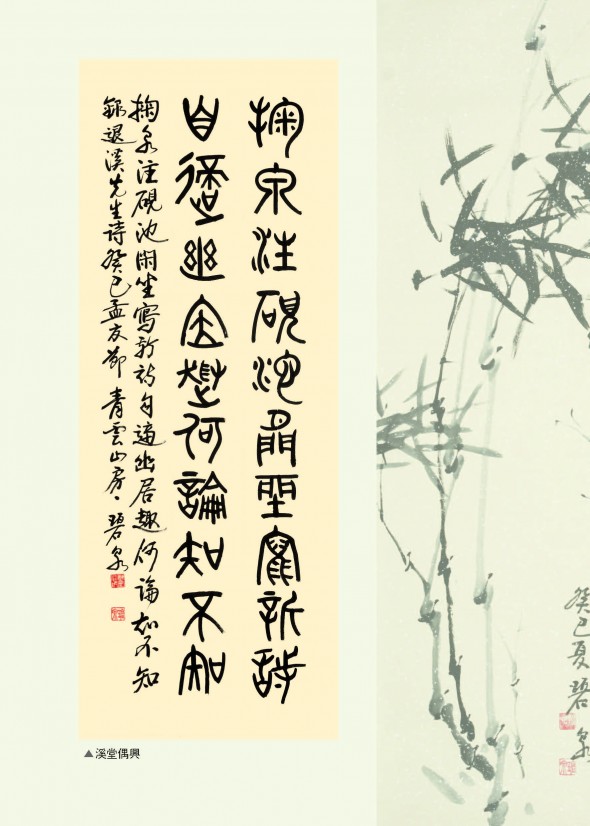 掬泉注硯池閒坐寫新詩
自適幽居趣何論知不知
掬泉注硯池閒坐寫新詩自適幽居趣何論知不知
錄退溪先生詩癸巳孟夏節 青雲山房 碧泉
▲溪堂偶興
癸巳夏 碧泉